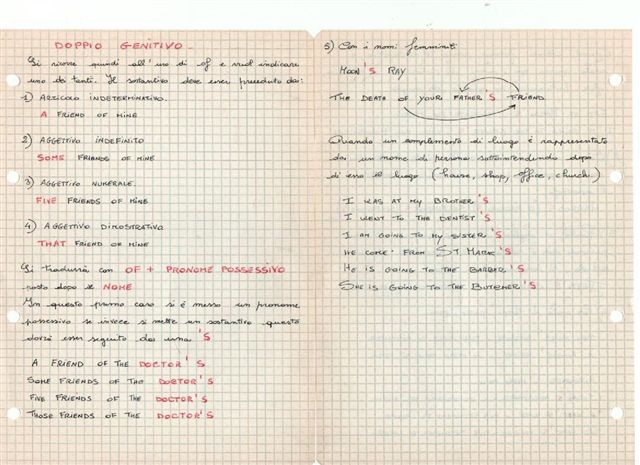 DOPPIO GENITIVO -
Si ricorre quindi all'uso di of e vuol indicare
uno da tanti. Il sostantivo deve esser preceduto da:
1) ARTICOLO INDETERMINATIVO.
A FRIEND OF MINE
2) AGGETTIVO INDEFINITO
SOME FRIENDS OF MINE
3) AGGETTIVO NUMERALE.
FIVE FRIENDS OF MINE
4) AGGETTIVO DIMOSTRATIVO
THAT FRIEND OF MINE
Si tradurrà con OF + PRONOME POSSESSIVO
posto dopo il NOME
In questo primo caso si è messo un pronome
possessivo se invece si mette un sostantivo questo
dovrà esser seguito da una 'S
A FRIEND OF THE DOCTOR'S
SOME FRIENDS OF THE DOCTOR'S
FIVE FRIENDS OF THE DOCTOR'S
THOSE FRIENDS OF THE DOCTOR'S
5) Con i nomi femminili
MOON'S RAY
THE DEATH OF YOUR FATHER'S FRIEND
Quando un complemento di luogo è rappresentato
da un nome di persona sottointendendo dopo
di esso il luogo (house, shop, office, church.)
I WAS AT MY BROTHER'S
I WENT TO THE DENTIST'S
I AM GOING TO MY SISTER'S
HE COME FROM ST MARK'S
HE IS GOING TO THE BARBER'S
SHE IS GOING TO THE BUTCHER'S